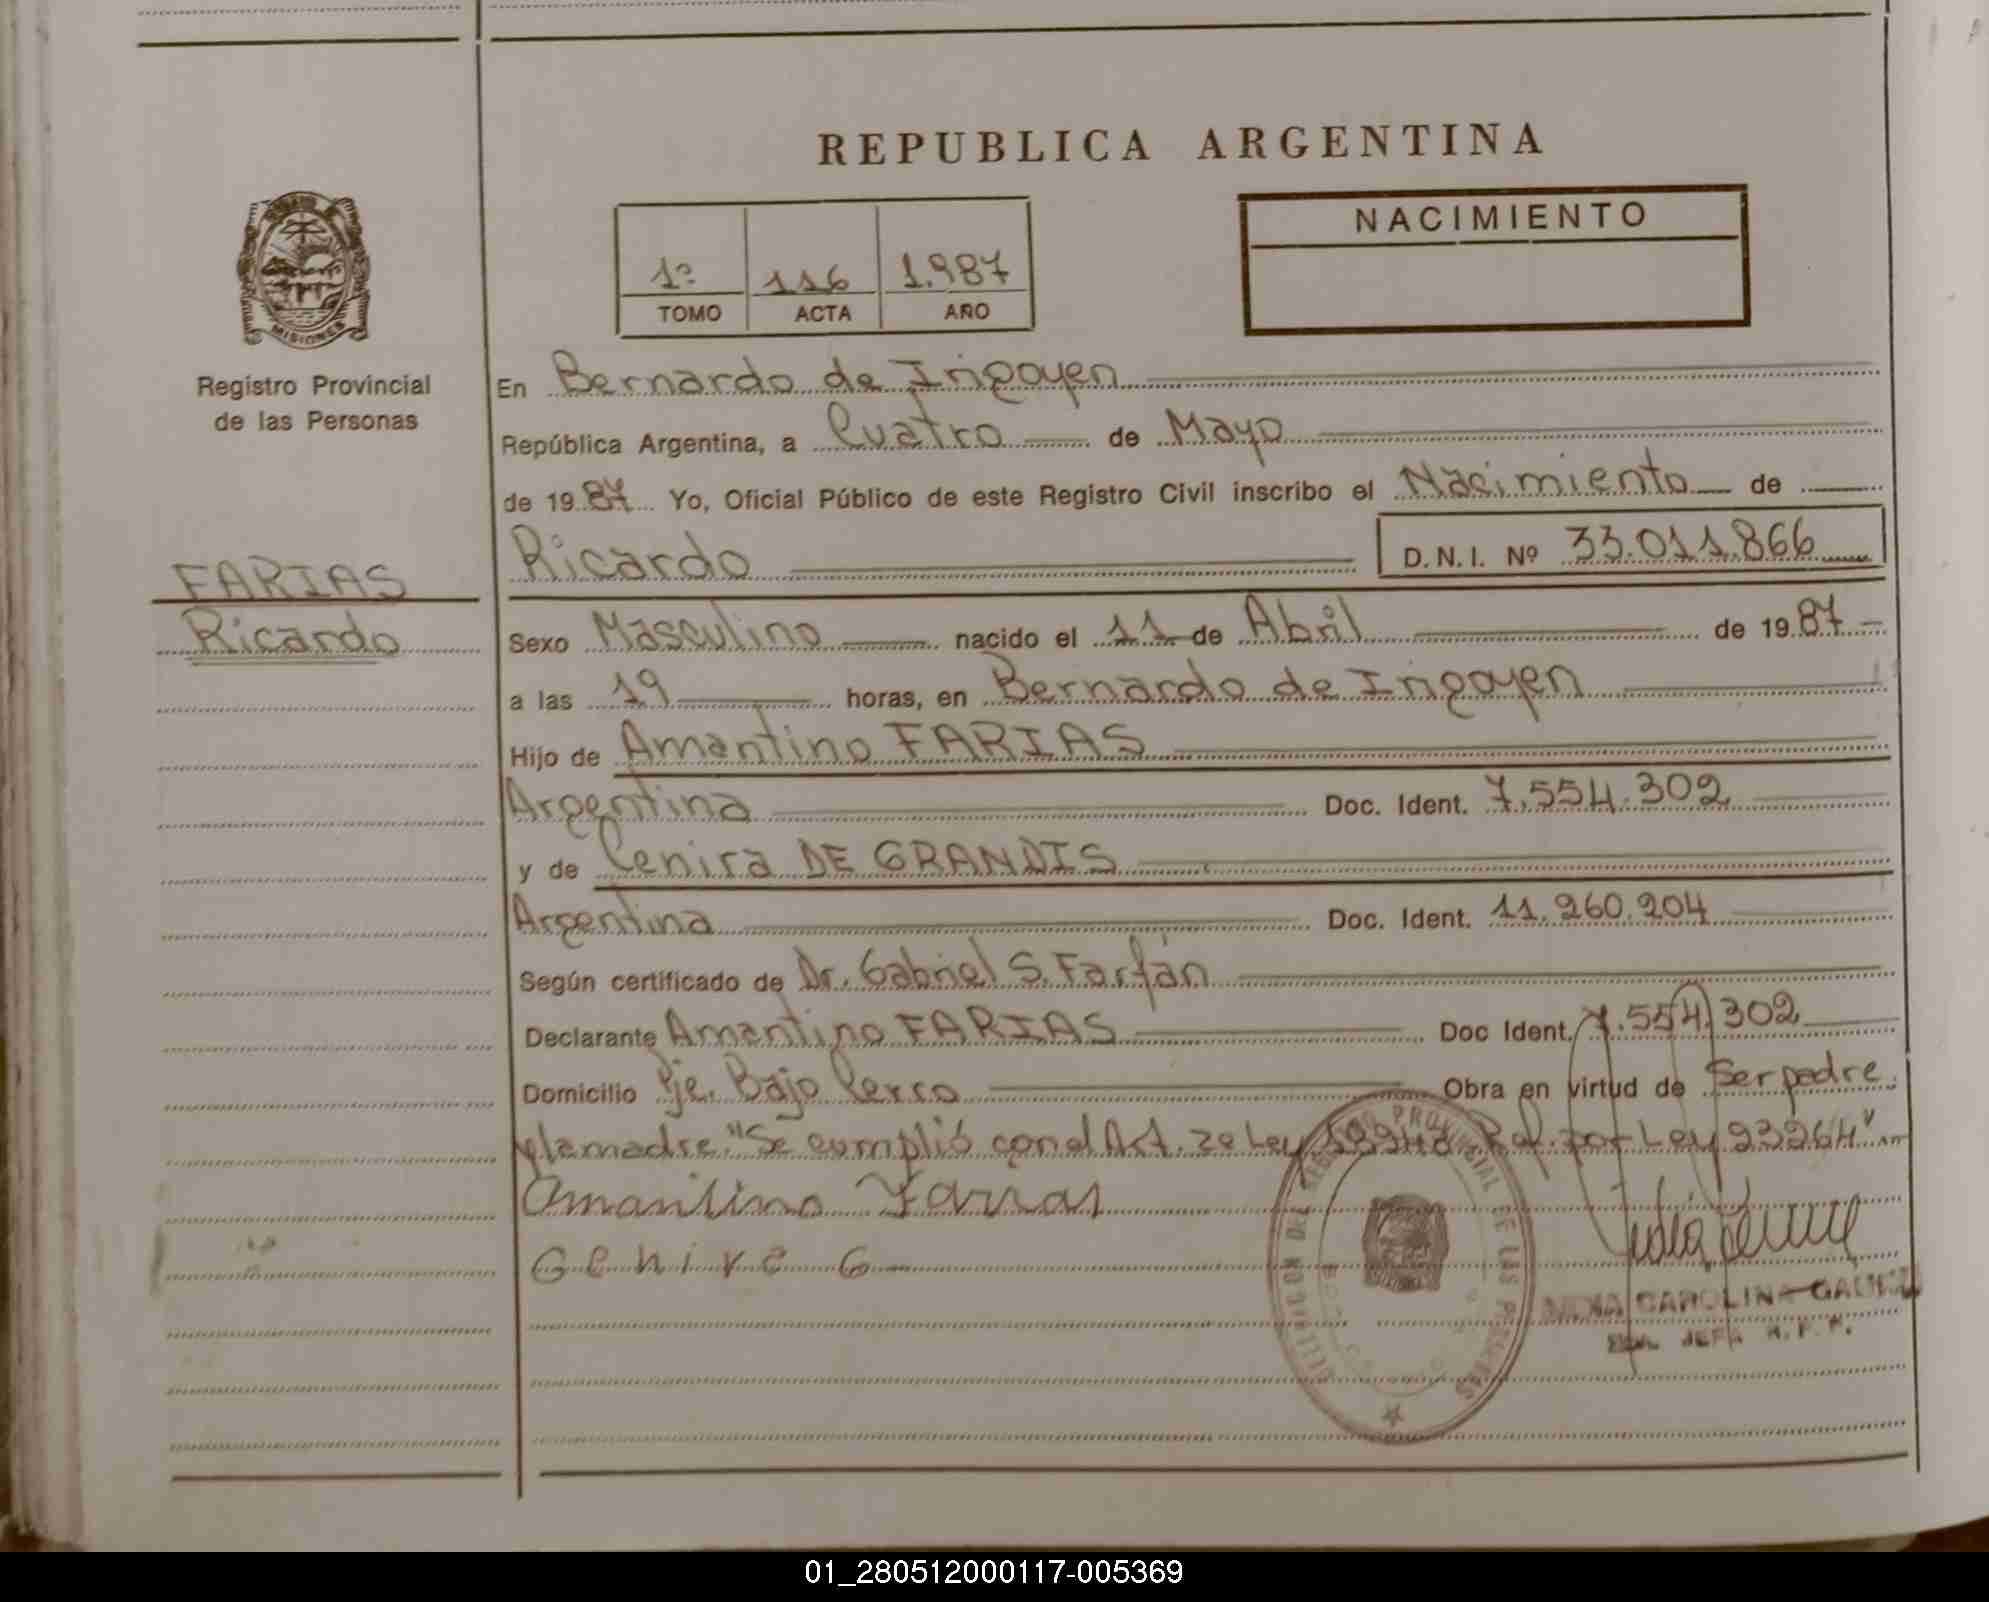 REPUBLICA ARGENTINA
1º 116 1.987
TOMO ACTA AÑO
NACIMIENTO
MISIONES
Registro Provincial
de las Personas
FARIAS
Ricardo
En Bernardo de Irigoyen
República Argentina, a Cuatro de Mayo
de 1987 Yo, Oficial Público de este Registro Civil inscribo el Nacimiento de
Ricardo D.N.I. Nº 33.011.866
Sexo Masculino nacido el 11 de Abril de 1987
a las 19 horas, en Bernardo de Irigoyen
Hijo de Amantino FARIAS
Argentina Doc. Ident. 7.554.302
y de Cenira DE GRANDIS
Argentina Doc. Ident. 11.260.204
Según certificado de Dr. Gabriel S. Farfán
Declarante Amantino FARIAS Doc Ident. 7.554.302
Domicilio Pje. Bajo Cerco Obra en virtud de Ser padre
y la madre. "Se cumplió con el Art. 2º Ley Ref. por Ley 23264"
Amantino Farias
Cenira G
PROVINCIAL DE LAS
CAROLINA
JEFA R.P.P.
01_280512000117-005369